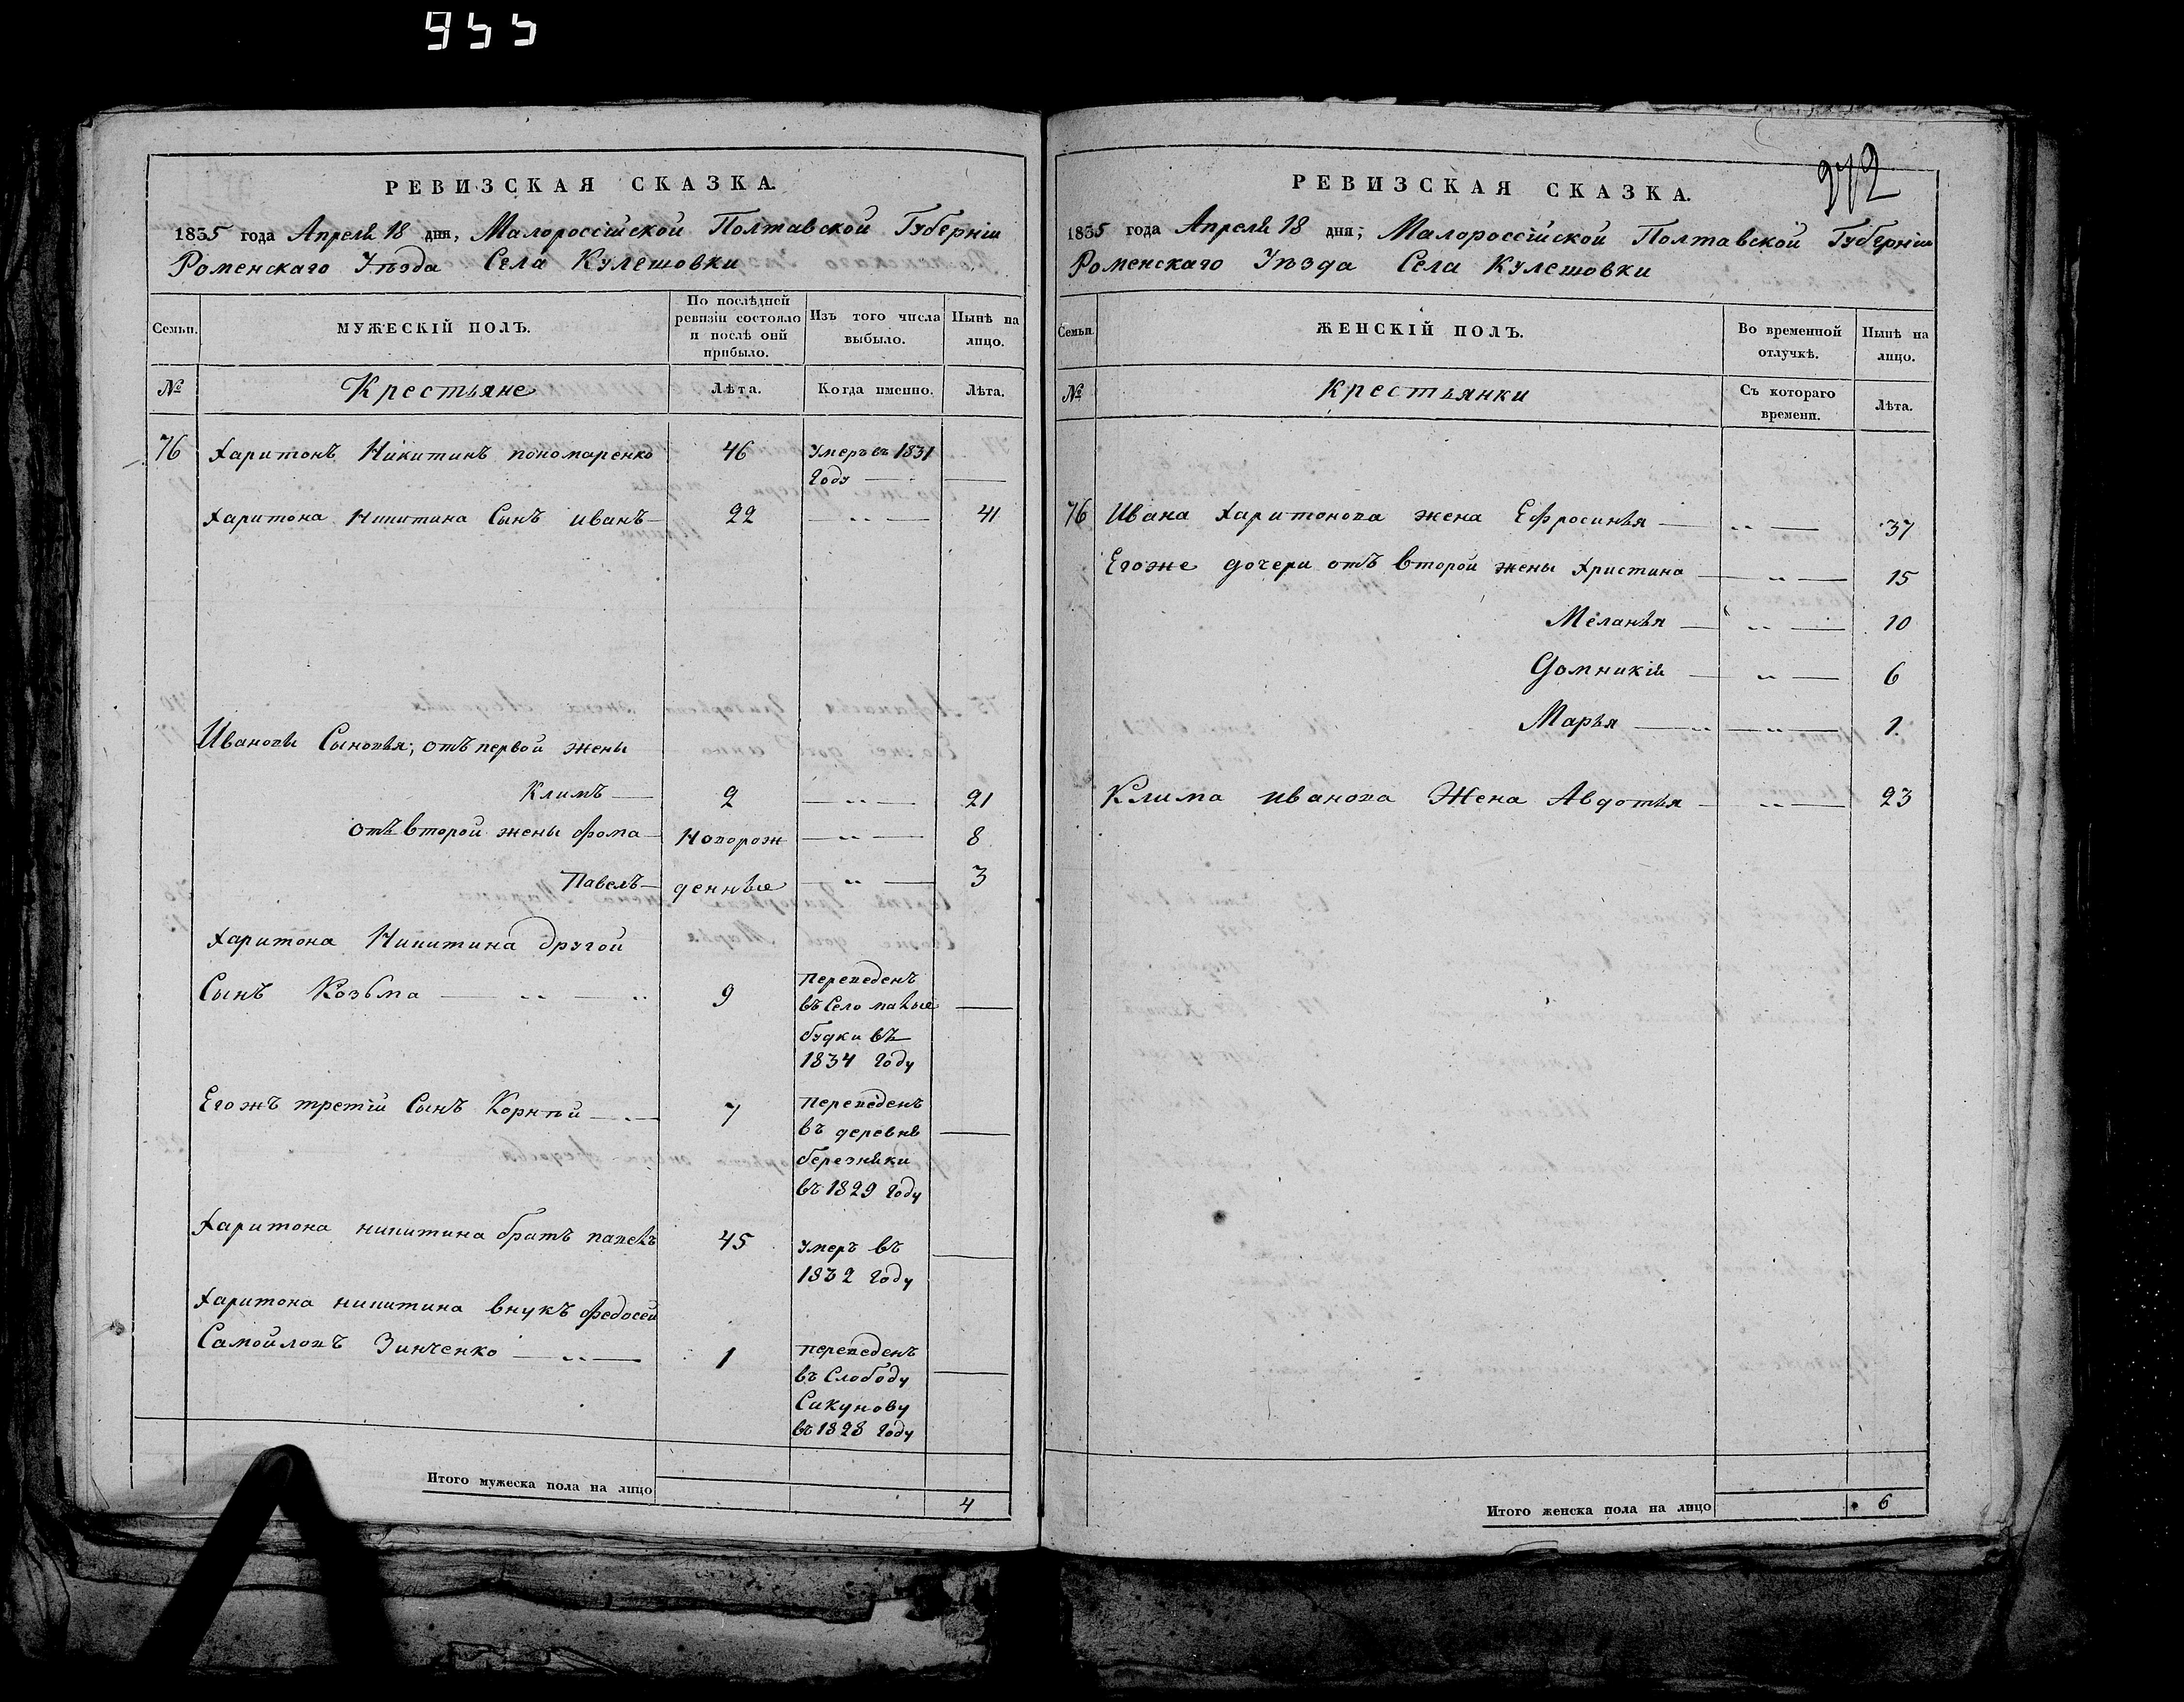 955
РЕВИЗСКАЯ СКАЗКА.
1835 года Апреля 18 дня, Малороссійской Полтавской Губерніи
Роменскаго Уѣзда Села Кулешовки
Семьи.
МУЖЕСКІЙ ПОЛЪ.
По послѣдней
ревизіи состояло
и послѣ оній
прибыло.
Изъ того числа
выбыло.
Нынѣ на
лицо.
№
Крестьяне
Лѣта.
Когда именно.
Лѣта.
76 Харитонъ Никитинъ пономаренко 46 Умеръ въ 1831
Году
Харитона Никитина Сынъ иванъ 22 41
Ивановы Сыновья, отъ первой жены
Климъ 2 21
отъ второй жены Фома Новорож 8
Павелъ денные 3
Харитона Никитина другой
Сынъ Козьма 9 переведенъ
въ Село малые
будки въ
1834 Году
Егожъ третій Сынъ Корнѣй 7 переведенъ
въ деревнѣ
березняки
въ 1829 Году
Харитона никитина братъ павелъ 45 Умеръ въ
1832 Году
Харитона никитина внукъ Федосей
Самойловъ Зинченко 1 переведенъ
въ Слободу
Сикунову
въ 1828 Году
Итого мужеска пола на лицо 4
РЕВИЗСКАЯ СКАЗКА.
972
1835 года Апреля 18 дня, Малороссійской Полтавской Губерніи
Роменскаго Уѣзда Села Кулешовки
Семьи.
ЖЕНСКІЙ ПОЛЪ.
Во временной
отлучкѣ.
Нынѣ на
лицо.
№
Крестьянки
Съ котораго
времени.
Лѣта.
76 Ивана Харитонова жена Ефросинья 37
Егоже дочери отъ второй жены Христина 15
Меланья 10
Домникія 6
Марья 1
Клима иванова Жена Авдотья 23
Итого женска пола на лицо 6